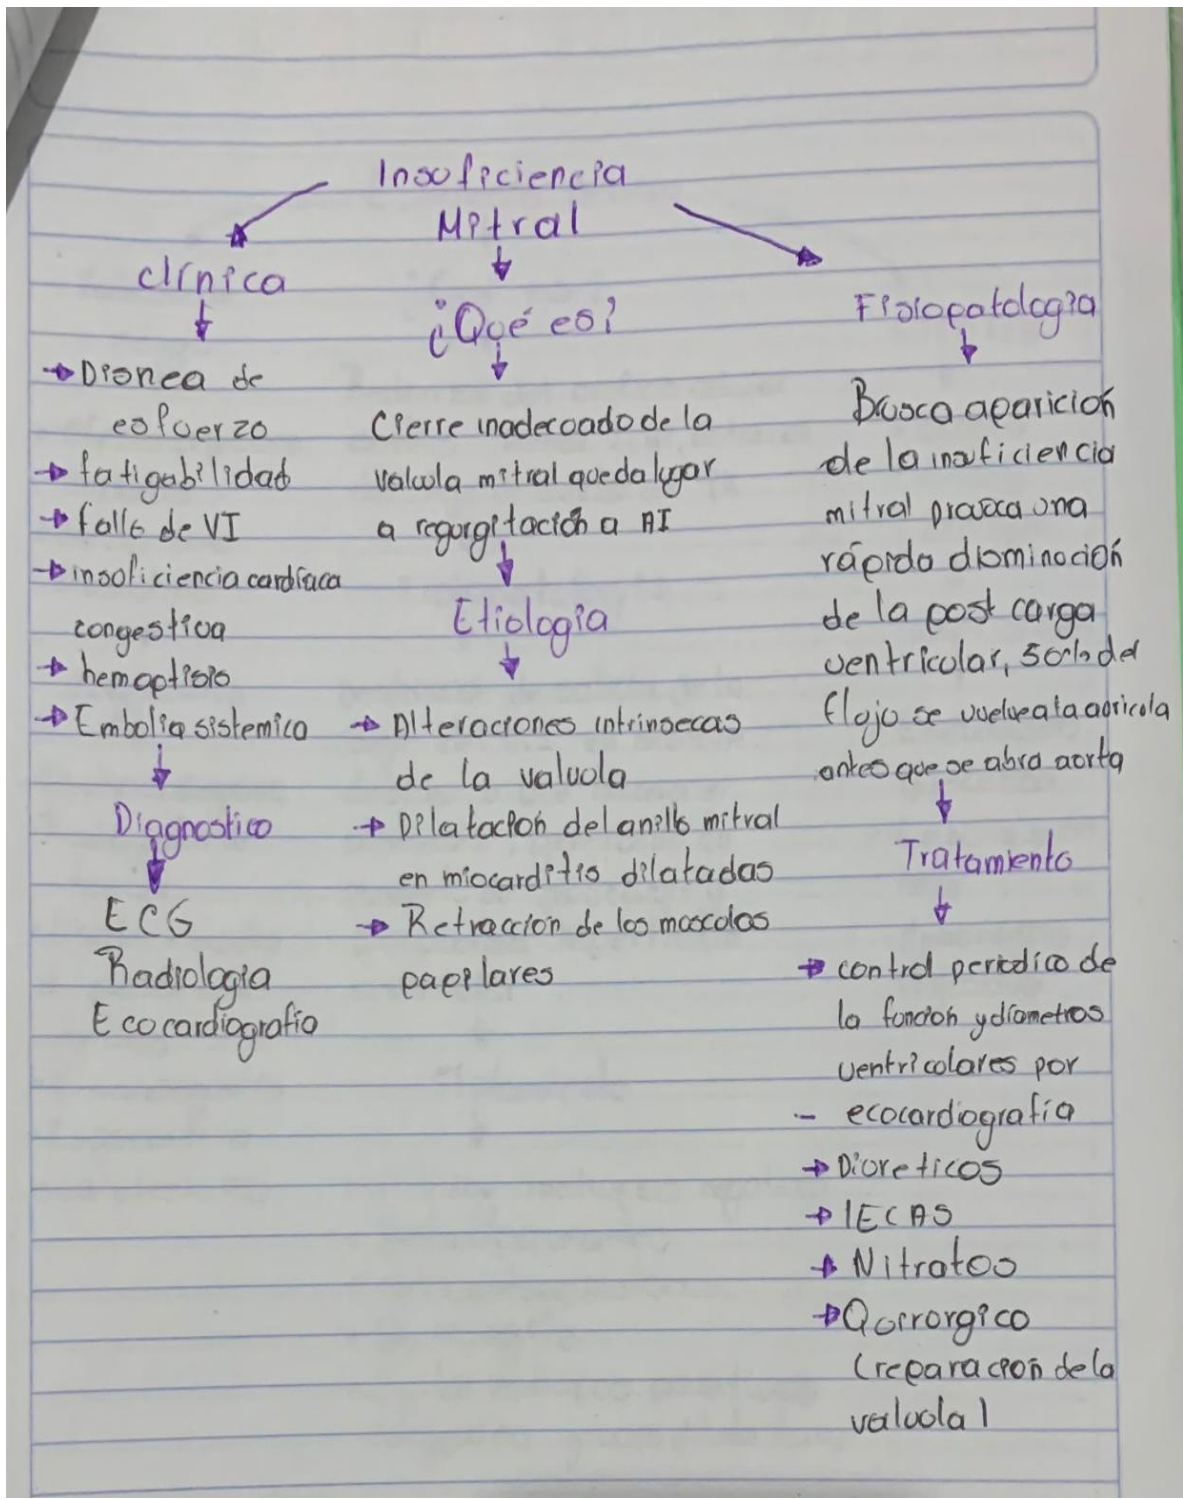 Insuficiencia
Mitral
Clínica
→ Disnea de
esfuerzo
→ fatigabilidad
→ fallo de VI
→ insuficiencia cardíaca
congestiva
→ hemoptisis
→ Embolia sistemica
Diagnostico
ECG
Radiologia
Ecocardiografia
¿Qué es?
Cierre inadecuado de la
valvula mitral que da lugar
a regurgitación a AI
Etiologia
→ Alteraciones intrinsecas
de la valvula
→ Dilatación del anillo mitral
en miocarditis dilatadas
→ Retracción de los musculos
papilares
Fisiopatologia
Brusca aparición
de la insuficiencia
mitral provoca una
rápida disminución
de la post carga
ventricular, 50% del
flujo se vuelve a la auricola
antes que se abra aorta
Tratamiento
→ control periodico de
la función y diámetros
ventriculares por
- ecocardiografía
→ Diureticos
→ IECAS
→ Nitratos
→ Quirurgico
(reparación de la
valvula)